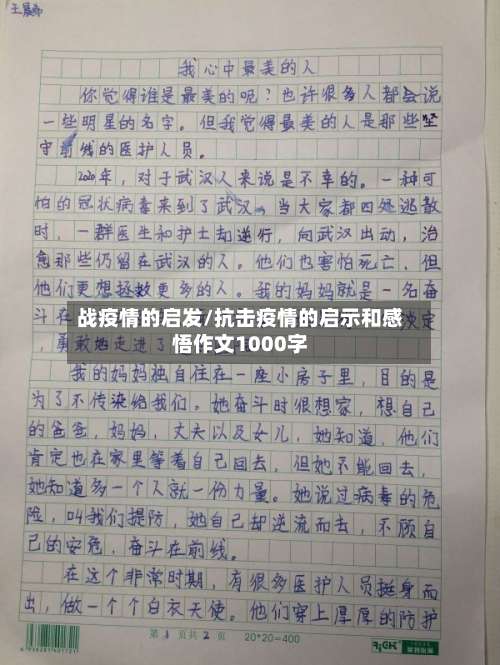 王晨希
我心中最美的人
你觉得谁是最美的呢?也许很多人都会说
一些明星的名字。但我觉得最美的人是那些坚
守前线的医护人员。
2020年,对于武汉人来说是不幸的。一种可
怕的冠状病毒来到了武汉。当大家都四处逃散
时,一群医生和护士却逆行,向武汉出动,治
愈那些仍留在武汉的人。他们也害怕死亡,但
他们更想拯救更多的人。我的妈妈就是一名奋
斗在
决定,
战疫情的启发/抗击疫情的启示和感
悟作文1000字
勇敢地走进了
我的妈妈独自住在一座小房子里,目的是
为了不传染给我们。她奋斗时很想家,想自己
的爸爸,妈妈,丈夫以及女儿,她知道,他们
肯定也在家里等着自己回去,但她不能回去,
她知道多一个人就一份力量。她说过病毒的危
险,叫我们提防,她自己却逆流而去,不顾自
己的安危,奋斗在前线。
在这个非常时期,有很多医护人员挺身而
出,做一个个白衣天使。他们穿上厚厚的防护
第 1 页共 2 页 20*20=400